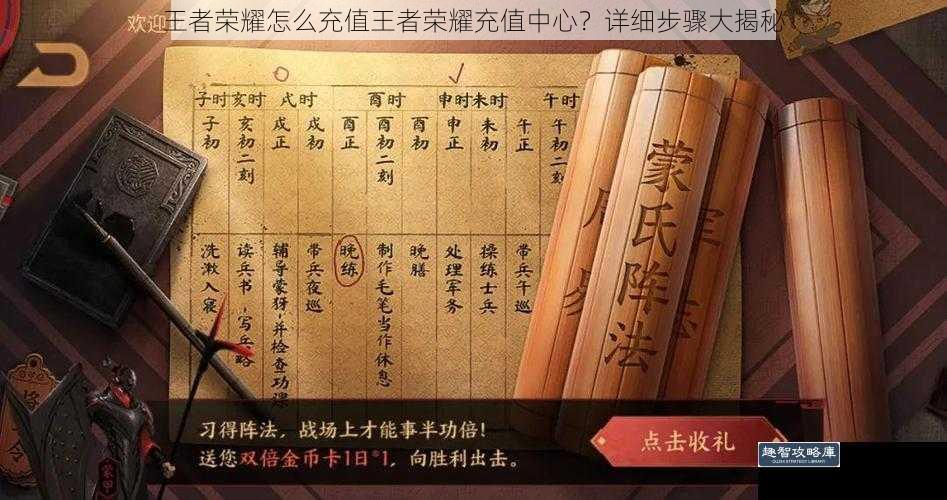 欢迎
王者荣耀怎么充值王者荣耀充值中心？详细步骤大揭秘
子时 亥时 戌时 酉时 申时 未时 午时
子初 亥初二刻 戌正 戌初 酉正 酉初二刻 酉初 申正 未初 午正 午初
洗漱入寝 读兵书，写兵略 辅导蒙犽，并检查功课 带兵夜巡 晚练 制作毛笔当作休息 晚膳 处理军务 操练士兵 带兵午巡
蒙氏阵法
将令
蒙甲
习得阵法，战场上才能事半功倍！
送您双倍金币卡1日*1，向胜利出击。
点击收礼
趣智攻略库